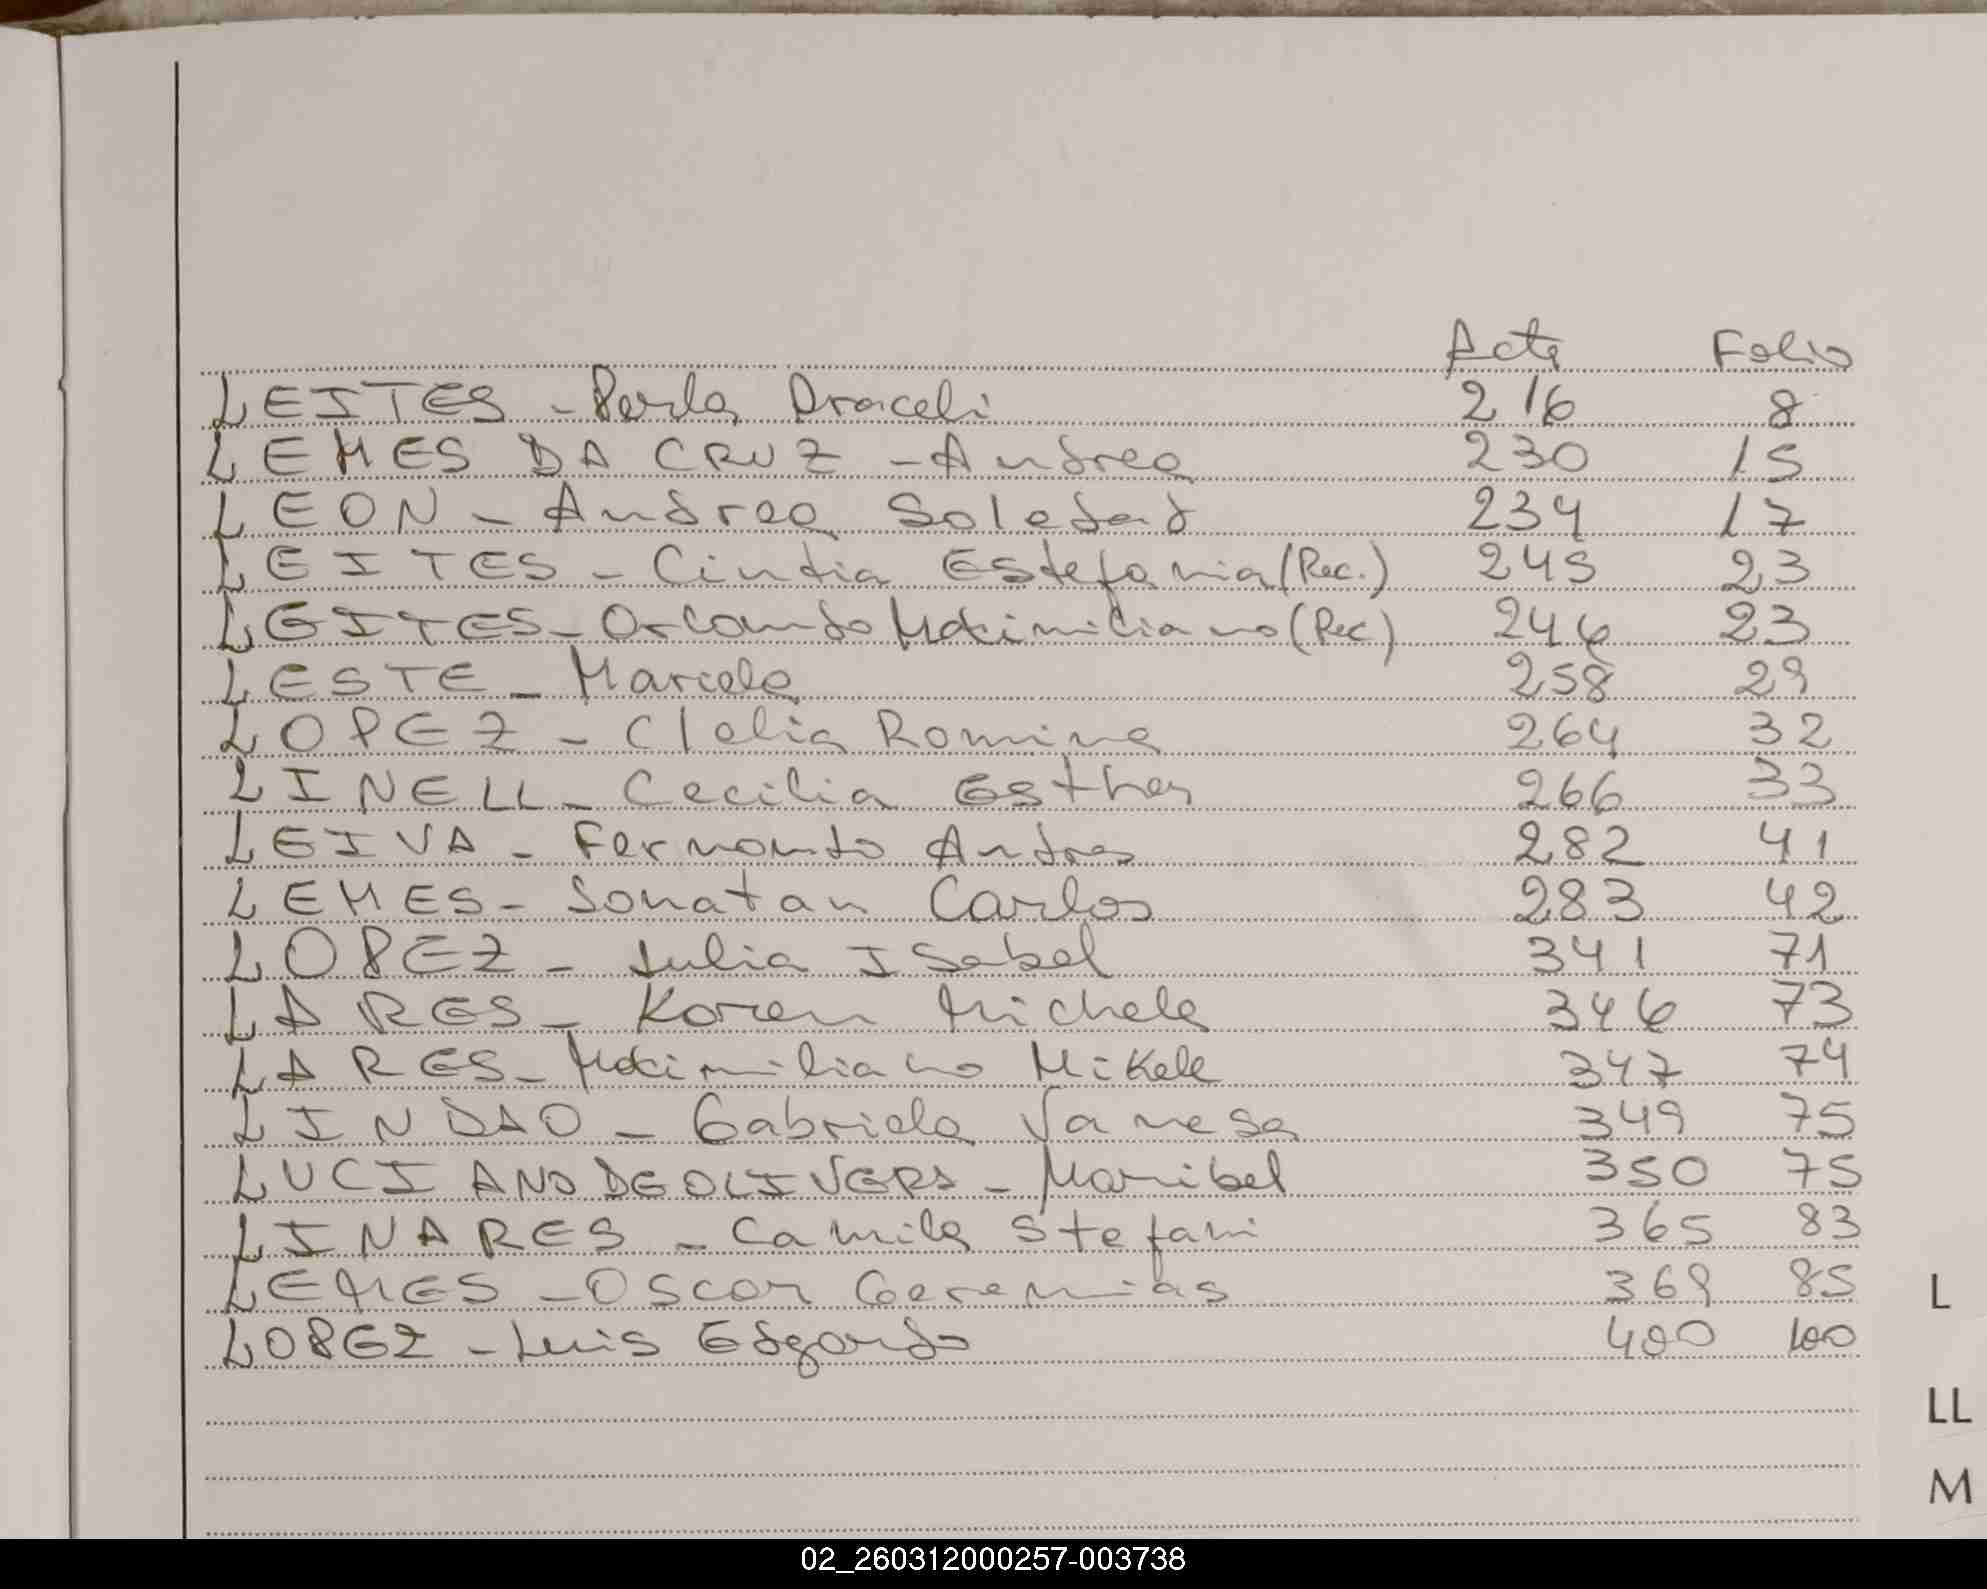 Acta Folio
LEITES - Perla Araceli 216 8
LEMES DA CRUZ - Andrea 230 15
LEON - Andrea Soledad 234 17
LEITES - Cintia Estefania (Rec.) 245 23
LEITES - Orlando Maximiliano (Rec) 246 23
LESTE - Marcela 258 29
LOPEZ - Clelia Romina 264 32
LINELL - Cecilia Esther 266 33
LEIVA - Fernando Andres 282 41
LEMES - Jonatan Carlos 283 42
LOPEZ - Julia Isabel 341 71
LARES - Karen Michele 346 73
LARES - Maximiliano Mikele 347 74
LINDAO - Gabriela Vanesa 349 75
LUCIANO DE OLIVERA - Maribel 350 75
LINARES - Camila Stefani 365 83
LEMES - Oscar Geremias 369 85
LOPEZ - Luis Edgardo 400 100
L
LL
M
02_260312000257-003738